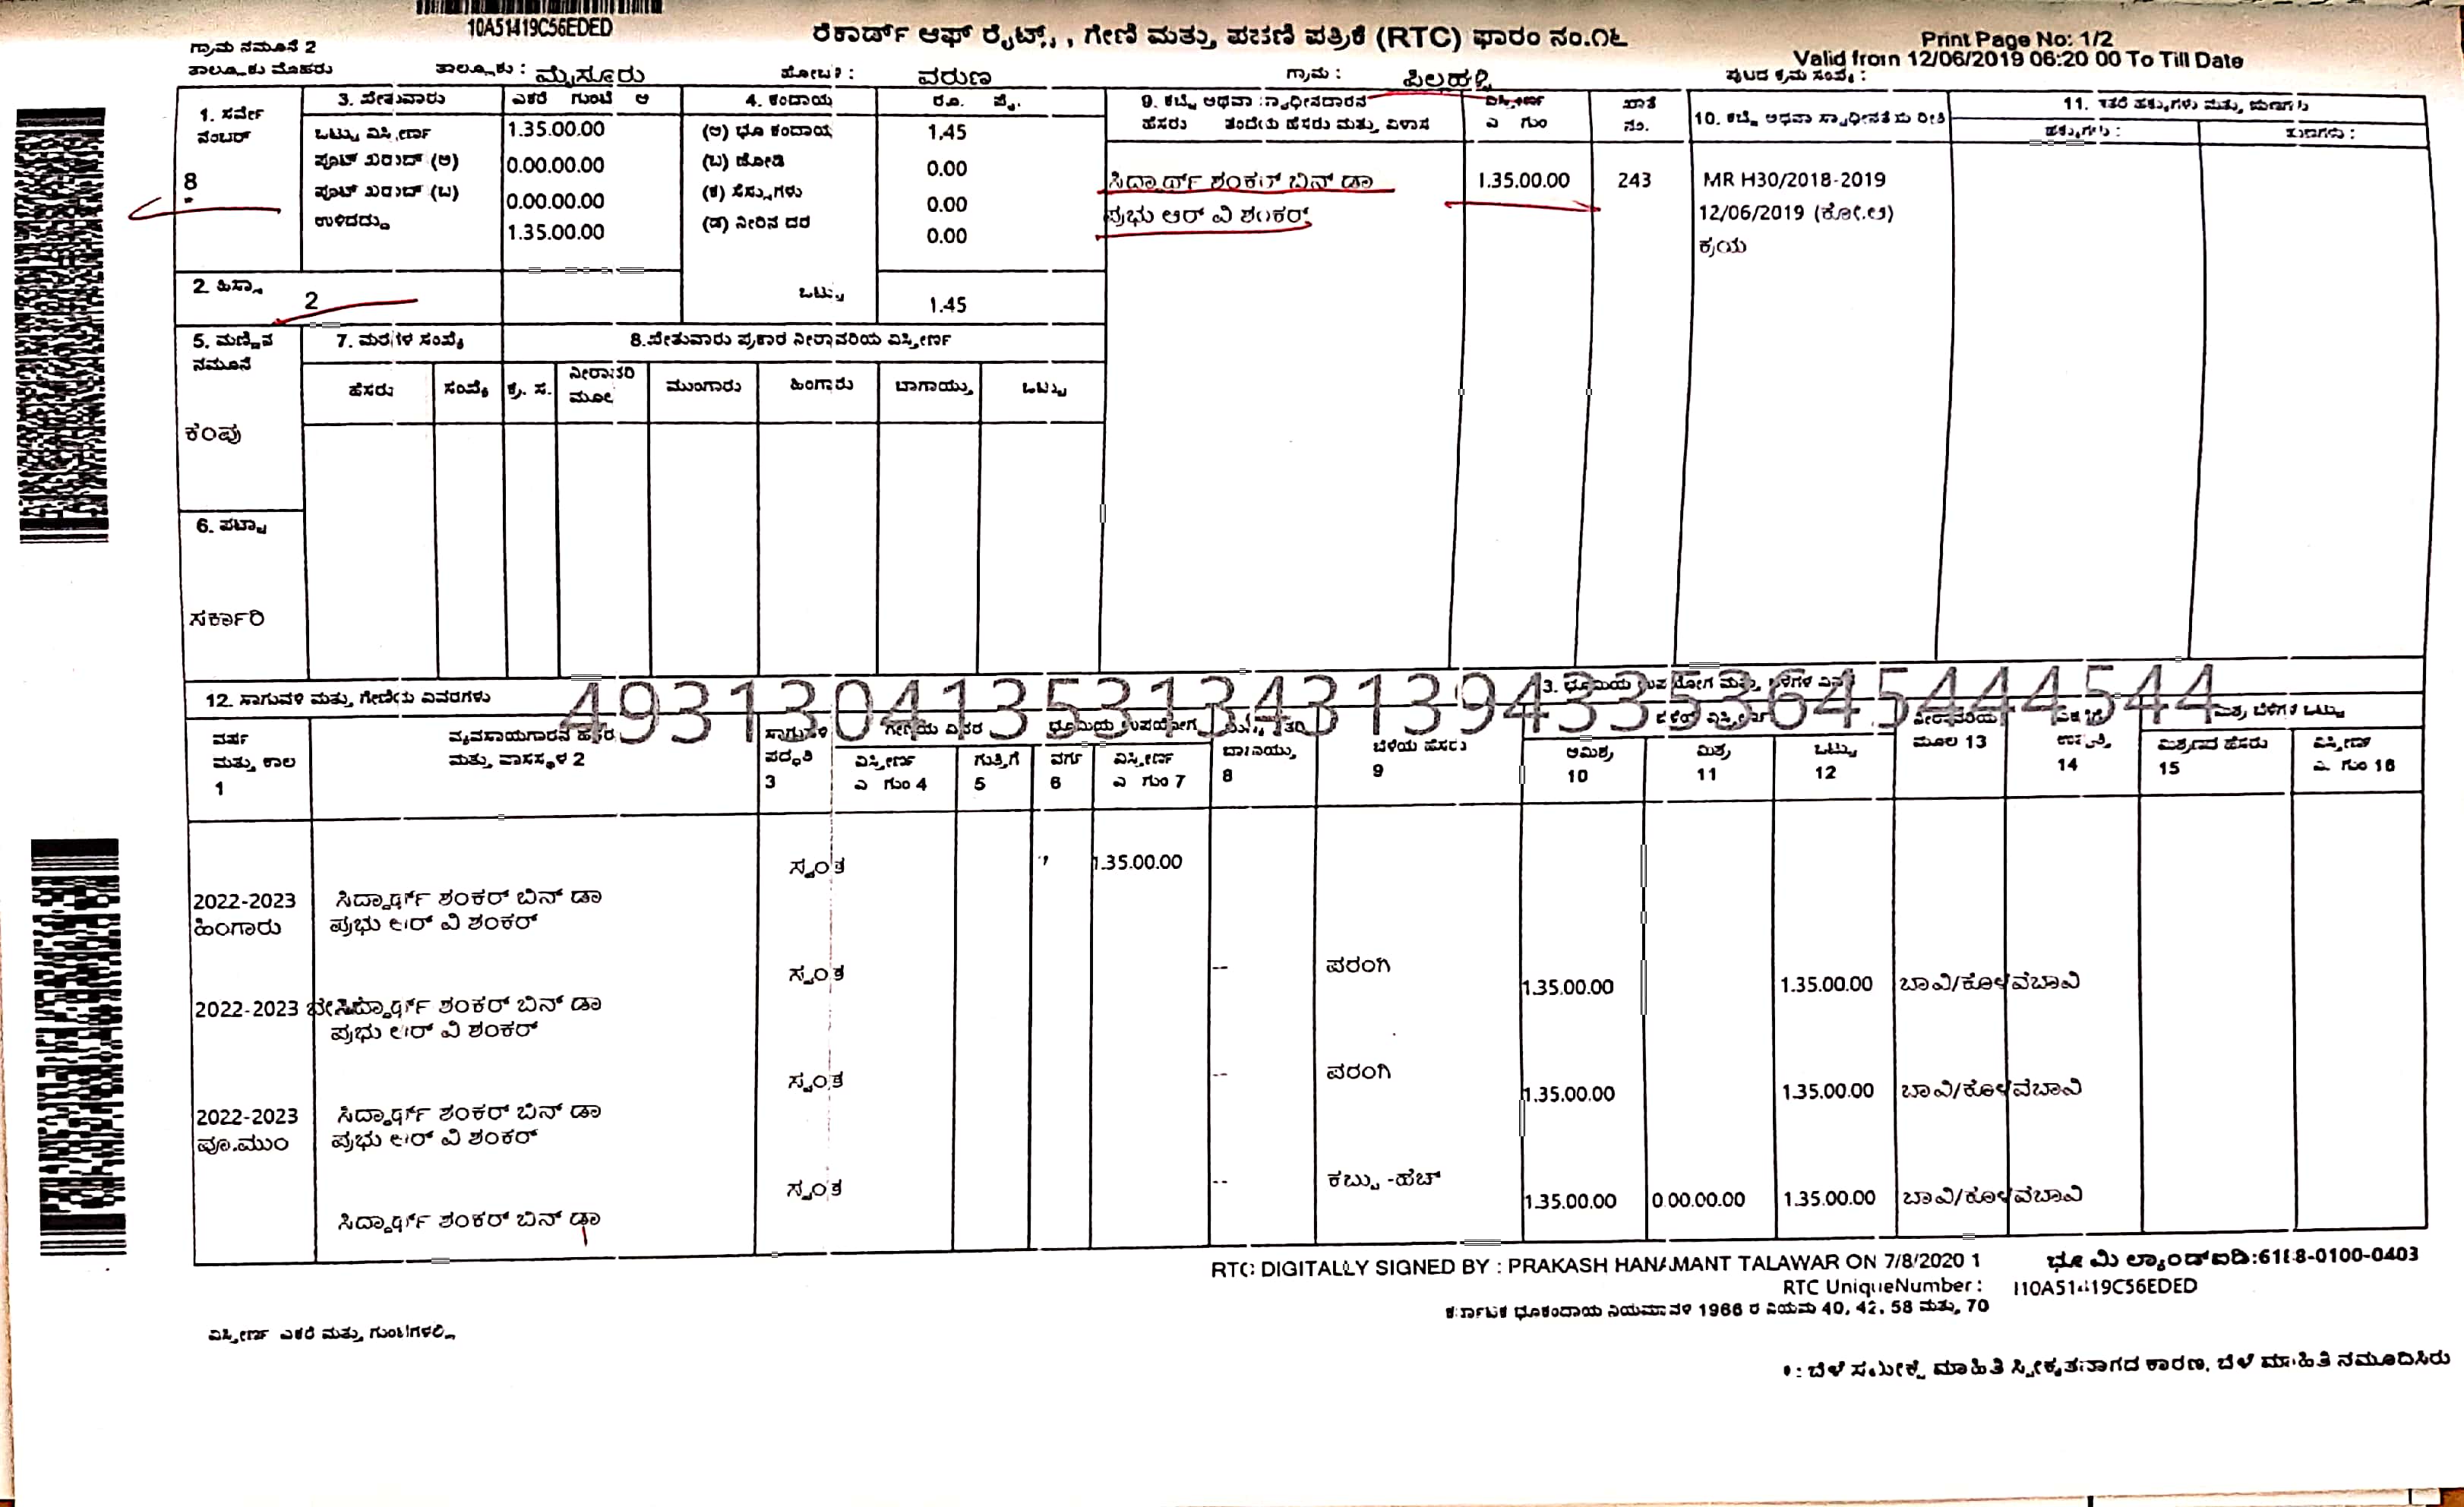 10A51419C56EDED
ರೆಕಾರ್ಡ್ ಆಫ್ ರೈಟ್ಸ್, ಗೇಣಿ ಮತ್ತು ಪಹಣಿ ಪತ್ರಿಕೆ (RTC) ಫಾರಂ ನಂ.೧೬
Print Page No: 1/2
ಗ್ರಾಮ ನಮೂನೆ 2
Valid from 12/06/2019 06:20 00 To Till Date
ತಾಲ್ಲೂಕು ಮೊಹರು ತಾಲ್ಲೂಕು : ಮೈಸೂರು ಹೋಬಳಿ : ವರುಣ ಗ್ರಾಮ : ಪಿಲ್ಲಹಳ್ಳಿ
1. ಸರ್ವೆ ನಂಬರ್
8
*
2. ಹಿಸ್ಸಾ 2
3. ಪೇತುವಾರು ಎಕರೆ ಗುಂಟೆ ಆ
ಒಟ್ಟು ವಿಸ್ತೀರ್ಣ 1.35.00.00
ಪೂಟ್ ಖರಾಬ್ (ಅ) 0.00.00.00
ಪೂಟ್ ಖರಾಬ್ (ಬ) 0.00.00.00
ಉಳಿದದ್ದು 1.35.00.00
4. ಕಂದಾಯ ರೂ. ಪೈ.
(ಅ) ಭೂ ಕಂದಾಯ 1.45
(ಬ) ಜೋಡಿ 0.00
(ಕ) ಸೆಸ್ಸುಗಳು 0.00
(ಡ) ನೀರಿನ ದರ 0.00
ಒಟ್ಟು 1.45
9. ಕಬ್ಜೆ ಅಥವಾ ಸ್ವಾಧೀನದಾರನ
ಹೆಸರು ತಂದೆಯ ಹೆಸರು ಮತ್ತು ವಿಳಾಸ
ವಿಸ್ತೀರ್ಣ
ಎ ಗುಂ
ಖಾತೆ
ನಂ.
10. ಕಬ್ಜೆ ಅಥವಾ ಸ್ವಾಧೀನತೆಯ ರೀತಿ
11. ಇತರೆ ಹಕ್ಕುಗಳು ಮತ್ತು ಋಣಗಳು
ಹಕ್ಕುಗಳು : ಋಣಗಳು :
ಸಿದ್ದಾರ್ಥ್ ಶಂಕರ್ ಬಿನ್ ಡಾ 1.35.00.00 243 MR H30/2018-2019
ಪ್ರಭು ಆರ್ ವಿ ಶಂಕರ್ 12/06/2019 (ಕೋ.ಆ)
ಕ್ರಯ
5. ಮಣ್ಣಿನ
ನಮೂನೆ
ಕೆಂಪು
6. ಪಟ್ಟಾ
ಸರ್ಕಾರಿ
7. ಮರಗಳ ಸಂಖ್ಯೆ 8.ಪೇತುವಾರು ಪ್ರಕಾರ ನೀರಾವರಿಯ ವಿಸ್ತೀರ್ಣ
ಹೆಸರು ಸಂಖ್ಯೆ ಕ್ರ. ಸ. ನೀರಾವರಿ ಮೂಲ ಮುಂಗಾರು ಹಿಂಗಾರು ಬಾಗಾಯ್ತು ಒಟ್ಟು
12. ಸಾಗುವಳಿ ಮತ್ತು ಗೇಣಿಯ ವಿವರಗಳು
493130413531343139433536454444544
ವರ್ಷ
ಮತ್ತು ಕಾಲ
1
ವ್ಯವಸಾಯಗಾರನ ಹೆಸರು
ಮತ್ತು ವಾಸಸ್ಥಳ 2
ಪದ್ಧತಿ
3
ವಿಸ್ತೀರ್ಣ
ಎ ಗುಂ 4
ಗುತ್ತಿಗೆ
5
ವರ್ಗ
6
ವಿಸ್ತೀರ್ಣ
ಎ ಗುಂ 7
8
ಬೆಳೆಯ ಹೆಸರು
9
ಅಮಿಶ್ರ
10
ಮಿಶ್ರ
11
ಒಟ್ಟು
12
ಮೂಲ 13
14
ಮಿಶ್ರ ಬೆಳೆಗಳ ಒಟ್ಟು
ಮಿಶ್ರಣದ ಹೆಸರು
15
ವಿಸ್ತೀರ್ಣ
ಎ. ಗುಂ 16
ಸ್ವಂತ 1.35.00.00
2022-2023 ಸಿದ್ದಾರ್ಥ್ ಶಂಕರ್ ಬಿನ್ ಡಾ
ಹಿಂಗಾರು ಪ್ರಭು ಆರ್ ವಿ ಶಂಕರ್
ಸ್ವಂತ -- ಪರಂಗಿ 1.35.00.00 1.35.00.00 ಬಾವಿ/ಕೊಳವೆಬಾವಿ
2022-2023 ಸಿದ್ದಾರ್ಥ್ ಶಂಕರ್ ಬಿನ್ ಡಾ
ಪ್ರಭು ಆರ್ ವಿ ಶಂಕರ್
ಸ್ವಂತ -- ಪರಂಗಿ 1.35.00.00 1.35.00.00 ಬಾವಿ/ಕೊಳವೆಬಾವಿ
2022-2023 ಸಿದ್ದಾರ್ಥ್ ಶಂಕರ್ ಬಿನ್ ಡಾ
ಪೂ.ಮುಂ ಪ್ರಭು ಆರ್ ವಿ ಶಂಕರ್
ಸ್ವಂತ -- ಕಬ್ಬು -ಹೆಚ್ 1.35.00.00 0.00.00.00 1.35.00.00 ಬಾವಿ/ಕೊಳವೆಬಾವಿ
ಸಿದ್ದಾರ್ಥ್ ಶಂಕರ್ ಬಿನ್ ಡಾ
RTC DIGITALLY SIGNED BY : PRAKASH HANAMANT TALAWAR ON 7/8/2020 1
ಭೂಮಿ ಲ್ಯಾಂಡ್ಐಡಿ:6188-0100-0403
RTC UniqueNumber : 110A51419C56EDED
ಕರ್ನಾಟಕ ಭೂಕಂದಾಯ ನಿಯಮಾವಳಿ 1966 ರ ನಿಯಮ 40, 42, 58 ಮತ್ತು 70
ವಿಸ್ತೀರ್ಣ ಎಕರೆ ಮತ್ತು ಗುಂಟೆಗಳಲ್ಲಿ
* : ಬೆಳೆ ಸಮೀಕ್ಷೆ ಮಾಹಿತಿ ಸ್ವೀಕೃತವಾಗದ ಕಾರಣ, ಬೆಳೆ ಮಾಹಿತಿ ನಮೂದಿಸಿರು